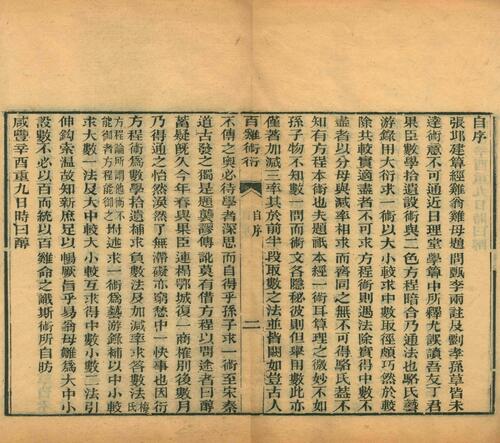 自序
張邱建算經雞翁雞母題問甄李兩註及劉孝孫草皆未
達術意不可通近日理堂學算中所釋尤誤讀吾友丁君
果臣數學拾遺設術與二色方程暗合乃通法也駱氏藝
游錄用大衍求一術以大小較求中數取徑頗巧然於較
除共較實適盡者不可求方程術則遇法除實得中數不
盡者以分母與減率相求而啻同之無不可得駱氏蓋不
知有方程本術也夫題祇本經一術耳算理之微妙不如
孫子物不知數一問而術文各隱秘彼則但舉用數此亦
僅著加減三率其於前半段取數之法並皆闕如豈古人
百雞術衍
自序
二
不傳之奧必待學者深思而自得乎孫子求一術至宋秦
道古發之獨是題襲謬傳訛莫有借方程以問途者曰醇
蓄疑既久今年春與果臣連榻鄂城復一商榷別後數月
乃得通之怡然渙然了無滯礙亦窮愁中一快事也因衍
方程術為數學拾遺補求負數法及加減率求答數法梅氏
方程論所謂他術不能御者方程能御之附述求一術為藝游錄補以中小較
求大數一法及大中較大小較互求中數小數二法引
伸鉤索溫故知新庶足以暢厥旨乎易翁母雛為大中小
設數不必以百而統以百雞命之識斯術所自昉
咸豐辛酉重九日時曰醇